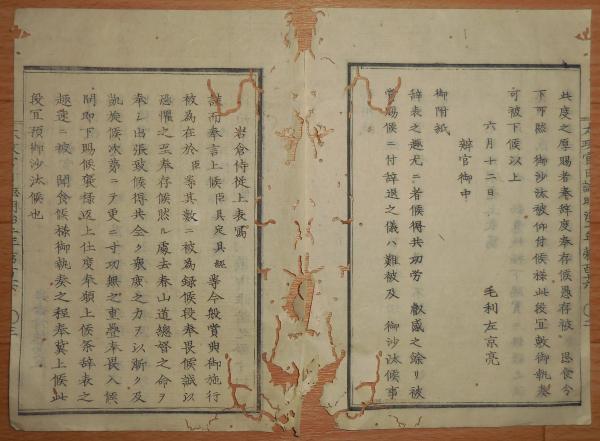 此度之厚賜者奉辞度奉存候愚存被 思食今
下可然 御沙汰被仰付候様此段宜敷御執奏
可被下候以上
六月十二日 毛利左京亮
辨官御中
御附紙
辞表之趣尤ニ者候得共功労 歓感之餘リ被
賞賜候ニ付辞退之儀ハ難被及 御沙汰候事
岩倉侍従上表寫
謹而奉言上候臣具定具経等今般賞典御施行
被為在於臣等其数ニ被為録候段奉畏候誠以
恐懼之至奉存候然ル處去春山道總督之命ヲ
奉シ出張致候得共全ク衆庶之力ヲ以漸ク及
凱旋候次第ニテ更ニ寸功無之重疊奉畏入候
間即下賜候褒様返上仕度奉願上候答辞表之
趣速ニ被 聞食候様御執奏之程奉冀上候此
段宜預御沙汰候也